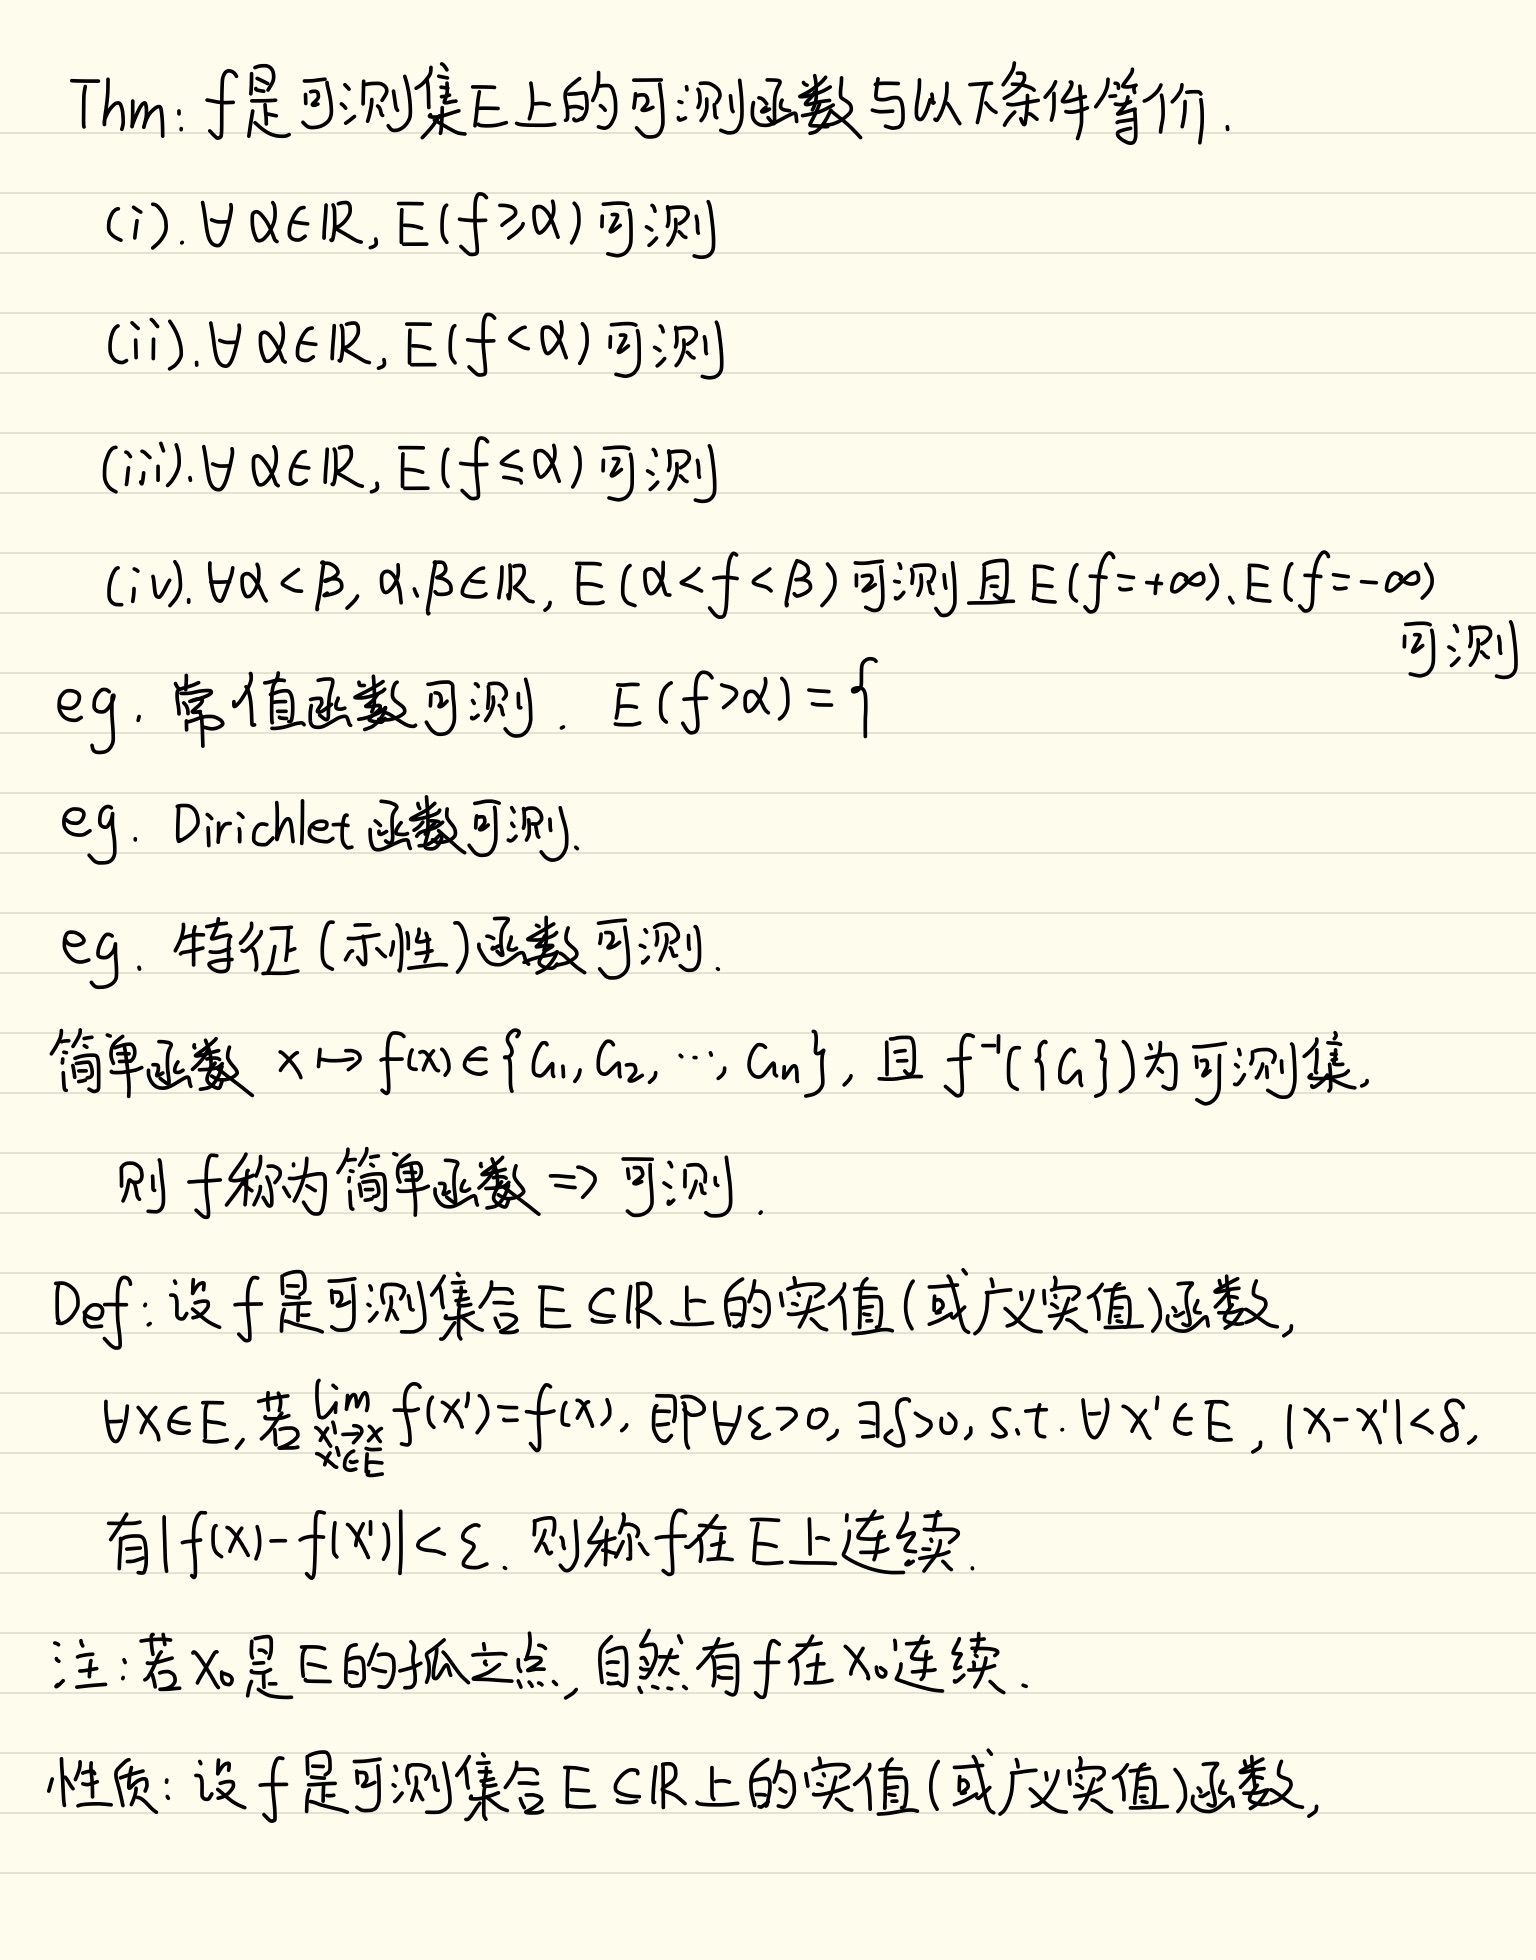 Thm: f是可测集E上的可测函数与以下条件等价.
(i). ∀α∈ℝ, E(f≥α)可测
(ii). ∀α∈ℝ, E(f<α)可测
(iii). ∀α∈ℝ, E(f≤α)可测
(iv). ∀α<β, α、β∈ℝ, E(α<f<β)可测且E(f=+∞)、E(f=-∞)
可测
eg. 常值函数可测. E(f>α)={
eg. Dirichlet函数可测.
eg. 特征(示性)函数可测.
简单函数 x↦f(x)∈{C₁, C₂, …, Cₙ}, 且 f⁻¹({Cᵢ})为可测集,
则f称为简单函数 ⇒ 可测.
Def: 设f是可测集合E⊆ℝ上的实值(或广义实值)函数,
∀x∈E, 若 lim_{x'→x, x'∈E} f(x')=f(x), 即∀ε>0, ∃δ>0, s.t. ∀x'∈E, |x-x'|<δ,
有|f(x)-f(x')|<ε. 则称f在E上连续.
注: 若x₀是E的孤立点, 自然有f在x₀连续.
性质: 设f是可测集合E⊆ℝ上的实值(或广义实值)函数,